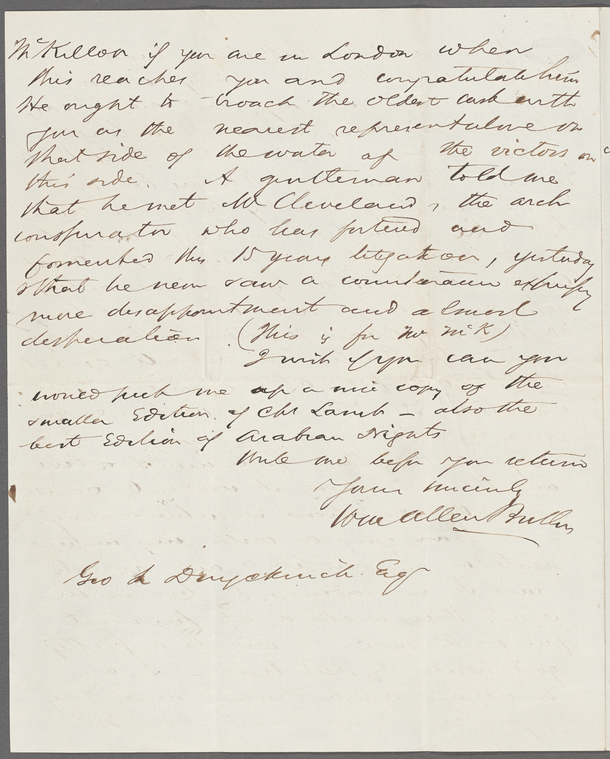 McKillop if you are in London when
this reaches you and congratulate him
He ought to broach the oldest cask with
you as the nearest representative on
that side of the water of the victors on
this side. A gentleman told me
that he met Mr Cleveland, the arch
conspirator who has fostered and
fomented this 15 years litigation, yesterday
& that he never saw a countenance express
more disappointment and almost
desperation (This is for Mr McK)
I wish if you can you
would pick me up a nice copy of the
smaller Edition of Chs Lamb – also the
best Edition of Arabian Nights
Write me before you return
Yours sincerely
Wm Allen Butler
Geo L Duyckinck Esq